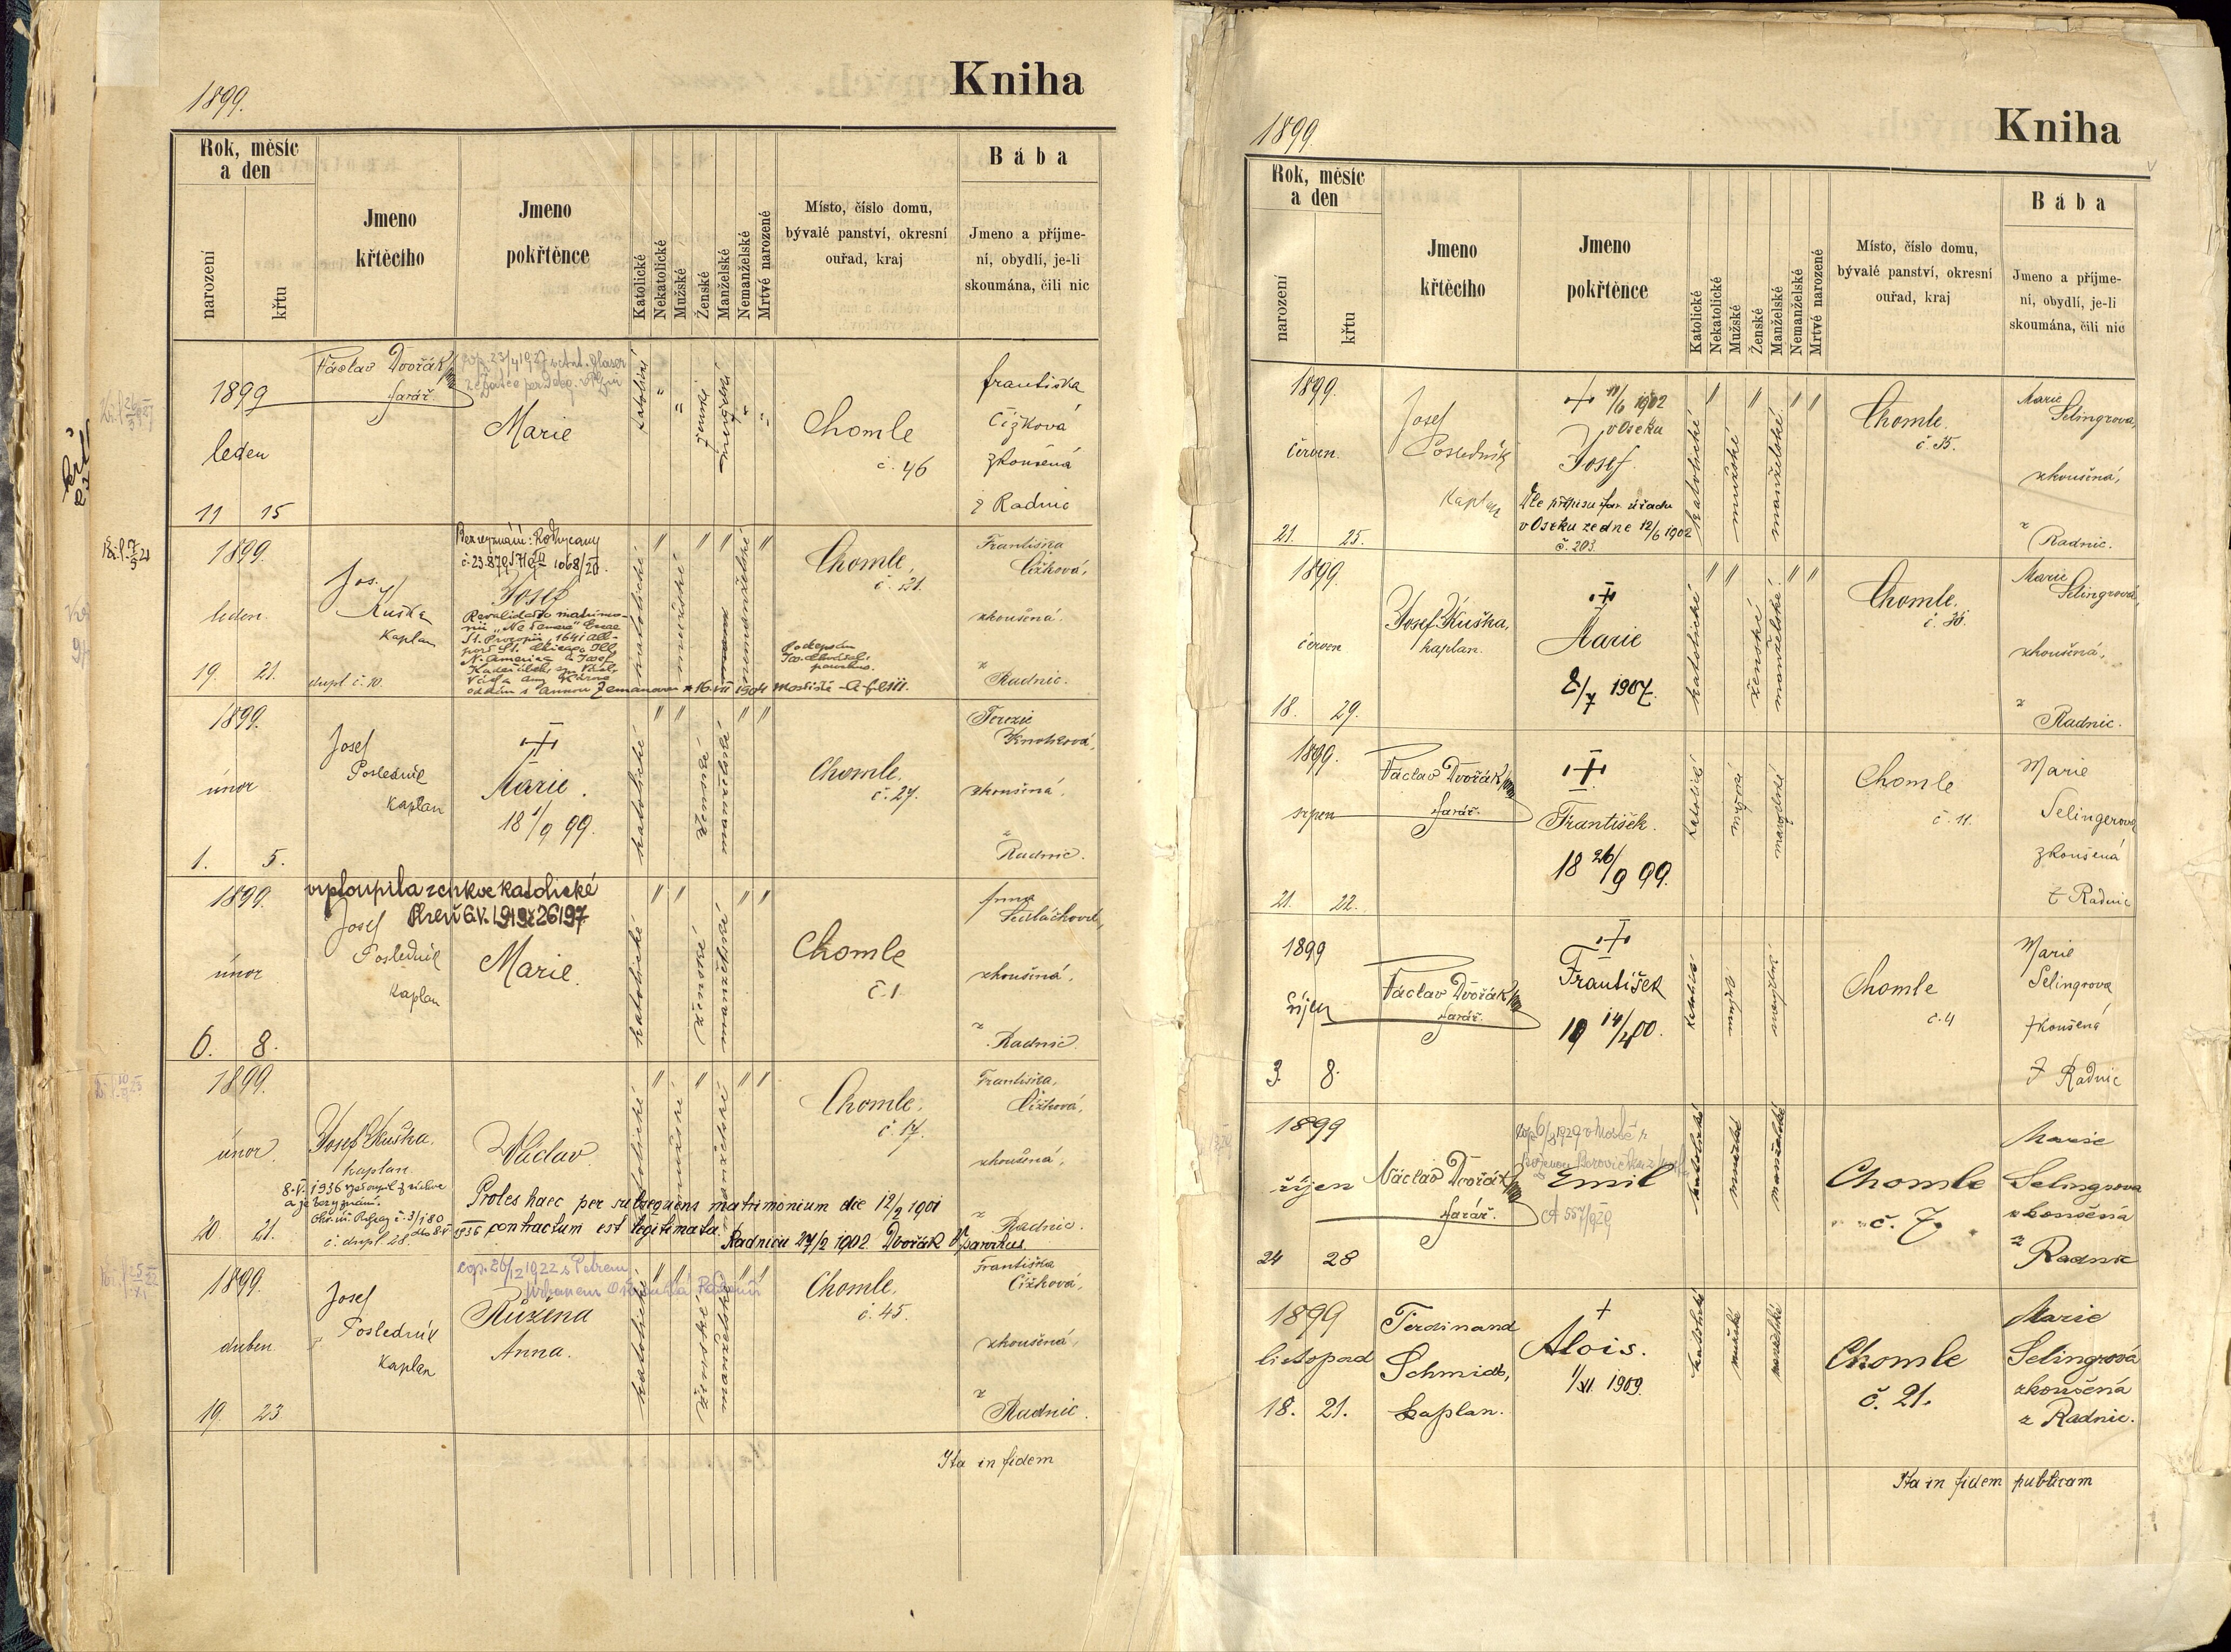 1899.
Kniha
Rok, měsíc
a den
narození
křtu
Jmeno
křtěcího
Jmeno
pokřtěnce
Katolické
Nekatolické
Mužské
Ženské
Manželské
Nemanželské
Mrtvé narozené
Místo, číslo domu,
bývalé panství, okresní
ouřad, kraj
Bába
Jmeno a příjme-
ní, obydlí, je-li
skoumána, čili nic
1899
leden
11 15
Václav Dvořák
farář.
Marie
Chomle
č. 46
Františka
Čížková
zkoušená
z Radnic
1899.
leden.
19. 21.
Jos.
Kuška
Kaplan
dupl. č. 10.
Bez vyznání: Rokycany
Josef
katolické
mužské
nemanželské
Chomle,
č. 21.
Františka
Čížková,
zkoušená.
z
Radnic.
1899.
únor
1. 5.
Josef
Posledník
Kaplan
Marie.
18 1/9 99.
katolické
ženské
manželské
Chomle.
č. 27.
Terezie
zkoušená,
z
Radnic.
1899.
únor
6. 8.
vystoupila z církve katolické
Josef
Posledník
Kaplan
Marie.
katolické
ženské
manželské
Chomle
č. 1.
Anna
Sedláčková,
zkoušená,
z
Radnic.
1899.
únor
20. 21.
Josef Kuška,
kaplan.
Václav.
8.V. 1936 vystoupil z církve
a je bez vyznání.
č. dupl. 28.
Proles haec per subsequens matrimonium die 12/2 1901
contractum est legitimata.
Radnicii 27/2 1902. Dvořák parochus.
Chomle.
č. 17.
Františka,
Čížková,
zkoušená,
z
Radnic.
1899.
duben.
19. 23
Josef
Posledník
Kaplan
cop. 26/12 1922 s Petrem
Růžena
Anna.
katolické
ženské
manželské
Chomle.
č. 45.
Františka
Čížková,
zkoušená,
z
Radnic.
Ita in fidem
1899.
Kniha
Rok, měsíc
a den
narození
křtu
Jmeno
křtěcího
Jmeno
pokřtěnce
Katolické
Nekatolické
Mužské
Ženské
Manželské
Nemanželské
Mrtvé narozené
Místo, číslo domu,
bývalé panství, okresní
ouřad, kraj
Bába
Jmeno a příjme-
ní, obydlí, je-li
skoumána, čili nic
1899.
červen.
21. 25.
Josef
Posledník
Kaplan
11/6 1902
v Oseku
Josef.
Dle přípisu far. úřadu
v Oseku ze dne 12/6 1902
č. 203.
katolické
mužské
manželské
Chomle.
č. 35.
Marie
Selingrova,
zkoušená,
z
Radnic.
1899.
červen
18. 29.
Josef Kuška,
kaplan.
Marie
8/7 1907.
katolické
ženské
manželské
Chomle.
č. 36.
Marie
Selingrová,
zkoušená,
z
Radnic.
1899.
srpen
21. 22.
Václav Dvořák
farář.
František.
18 26/9 99.
Chomle
č. 11.
Marie
Selingerova
zkoušená
z Radnic
1899
říjen
3. 8.
Václav Dvořák
farář.
František
19 14/4 00.
Chomle
č. 4
Marie
Selingrova
zkoušená
z Radnic
1899
říjen
24 28
Václav Dvořák
farář.
Emil
Chomle
č. 7.
Marie
Selingrova
zkoušená
z
Radnic
1899
listopad
18. 21.
Ferdinand
Schmidt,
kaplan.
Alois.
1/XI. 1909.
Chomle
č. 21.
Marie
Selingrová
zkoušená
z Radnic.
Ita in fidem publicam